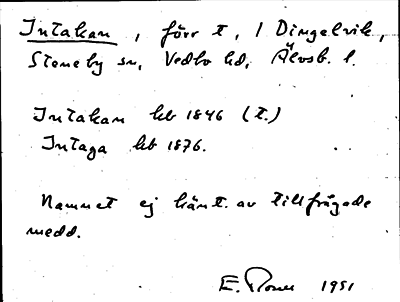 Intakan, förr t, / Dingelvik,
Steneby sn, Vedbo hd, Älvsb. l.
Intakan hb 1846 (t.)
Intaga hb 1876.
Namnet ej känt av tillfrågade
medd.
E. 1951